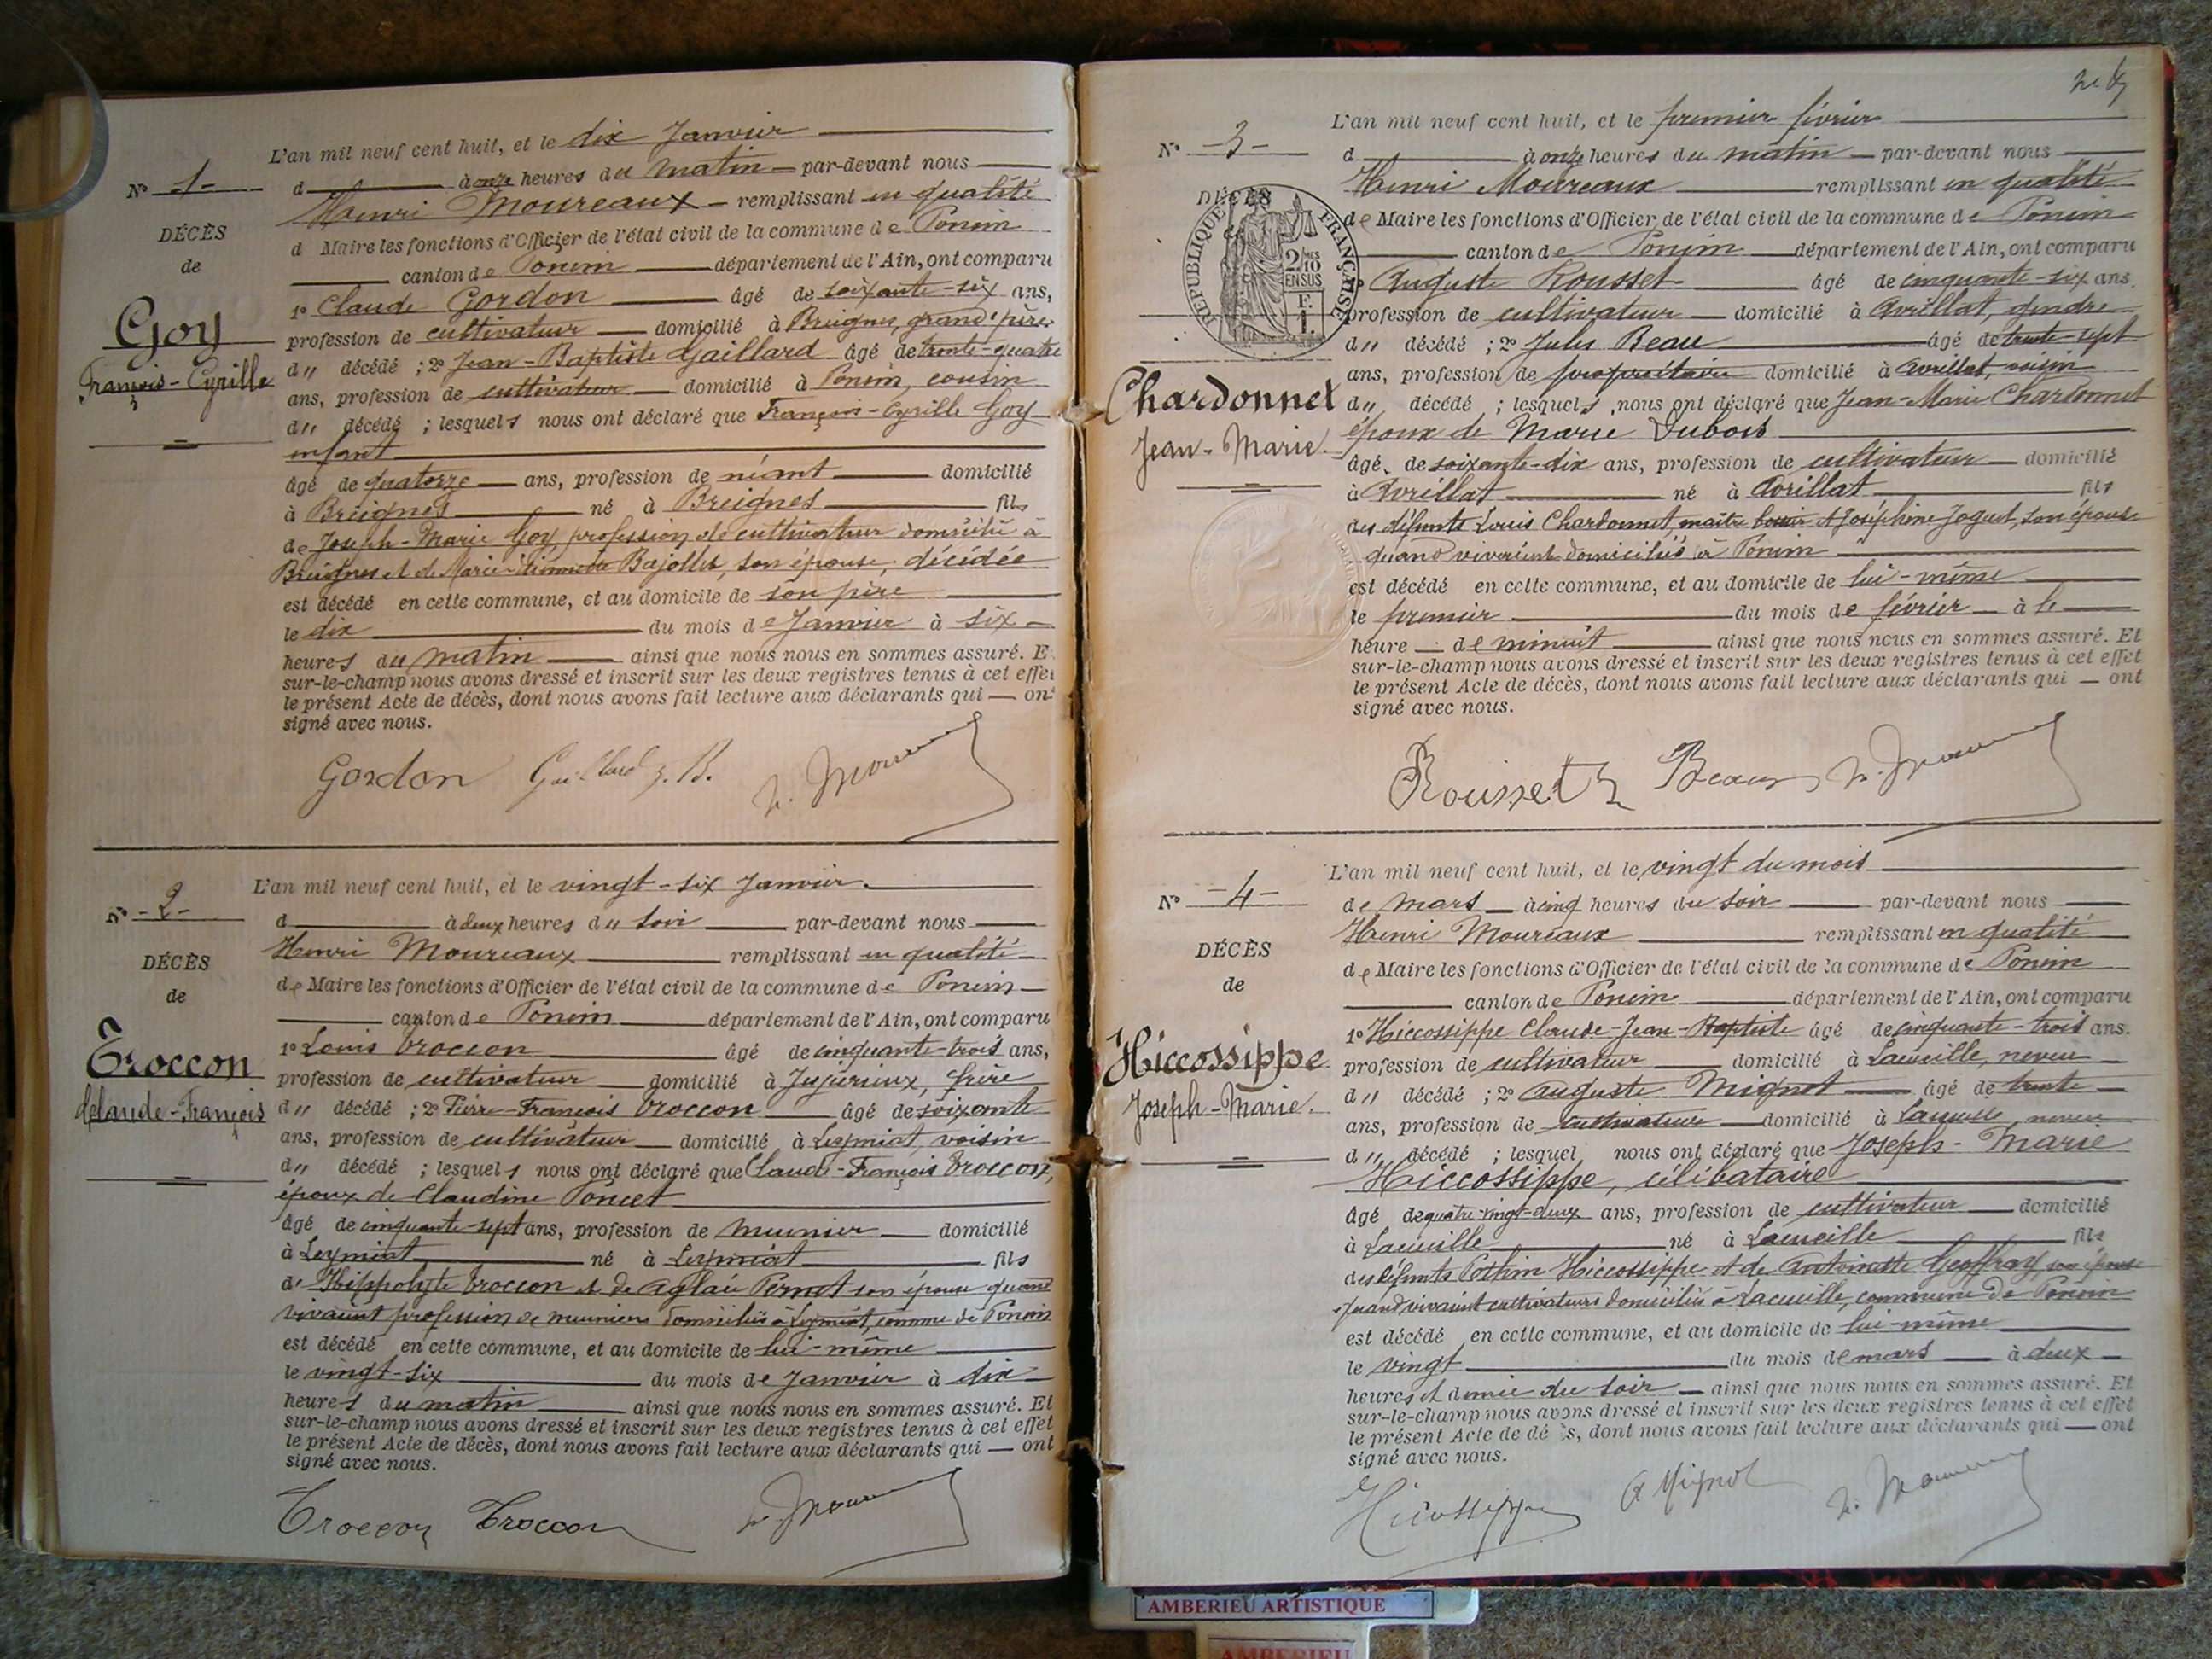 L'an mil neuf cent huit, et le dix Janvier
N° -1-
d à onze heures du matin par-devant nous
Henri Moureaux remplissant en qualité
DÉCÈS
d Maire les fonctions d'Officier de l'état civil de la commune de Poncin
de
canton de Poncin département de l'Ain, ont comparu
1° Claude Gordon âgé de soixante-six ans,
Goy
profession de cultivateur domicilié à Breignes, grand'père
François-Cyrille
du décédé ; 2° Jean-Baptiste Gaillard âgé de trente-quatre
ans, profession de cultivateur domicilié à Poncin, cousin
du décédé ; lesquels nous ont déclaré que François-Cyrille Goy
enfant
âgé de quatorze ans, profession de néant domicilié
à Breignes né à Breignes fils
de Joseph-Marie Goy profession de cultivateur domicilié à
Breignes et de Marie Bajollet, son épouse, décédée
est décédé en cette commune, et au domicile de son père
le dix du mois de Janvier à six
heures du matin ainsi que nous nous en sommes assuré. E
sur-le-champ nous avons dressé et inscrit sur les deux registres tenus à cet effet
le présent Acte de décès, dont nous avons fait lecture aux déclarants qui ont
signé avec nous.
Gordon Gaillard J. B. h. Moureaux
L'an mil neuf cent huit, et le vingt-six Janvier.
N° -2-
d à deux heures du soir par-devant nous
Henri Moureaux remplissant en qualité
DÉCÈS
de Maire les fonctions d'Officier de l'état civil de la commune de Poncin
de
canton de Poncin département de l'Ain, ont comparu
1° Louis Troccon âgé de cinquante-trois ans,
Troccon
profession de cultivateur domicilié à Jujurieux, frère
Claude-François
du décédé ; 2° Pierre-François Troccon âgé de soixante
ans, profession de cultivateur domicilié à Leymiat, voisin
du décédé ; lesquels nous ont déclaré que Claude-François Troccon,
époux de Claudine Poncet
âgé de cinquante-sept ans, profession de meunier domicilié
à Leymiat né à Leymiat fils
d' Hippolyte Troccon et de Aglaé Pernot son épouse quand
vivaient profession de meuniers domiciliés à Leymiat, comme de Poncin
est décédé en cette commune, et au domicile de lui-même
le vingt-six du mois de Janvier à dix
heures du matin ainsi que nous nous en sommes assuré. Et
sur-le-champ nous avons dressé et inscrit sur les deux registres tenus à cet effet
le présent Acte de décès, dont nous avons fait lecture aux déclarants qui ont
signé avec nous.
Troccon Troccon h. Moureaux
L'an mil neuf cent huit, et le premier février
N° -3-
d à onze heures du matin par-devant nous
Henri Moureaux remplissant en qualité
DÉCÈS
de Maire les fonctions d'Officier de l'état civil de la commune de Poncin
canton de Poncin département de l'Ain, ont comparu
RÉPUBLIQUE FRANÇAISE
2/10
EN SUS
F.
1.
Auguste Rousset âgé de cinquante-six ans,
profession de cultivateur domicilié à Avrillat, gendre
du décédé ; 2° Jules Beau âgé de trente-sept
ans, profession de propriétaire domicilié à Avrillat, voisin
Chardonnet
du décédé ; lesquels nous ont déclaré que Jean-Marie Chardonnet
Jean-Marie.
époux de Marie Dubois
âgé de soixante-dix ans, profession de cultivateur domicilié
à Avrillat né à Avrillat fils
des défunts Louis Chardonnet et Joséphine Joguet, son épouse
quand vivaient domiciliés à Poncin
est décédé en cette commune, et au domicile de lui-même
le premier du mois de février à le
heure de minuit ainsi que nous nous en sommes assuré. Et
sur-le-champ nous avons dressé et inscrit sur les deux registres tenus à cet effet
le présent Acte de décès, dont nous avons fait lecture aux déclarants qui ont
signé avec nous.
Rousset Beau h. Moureaux
L'an mil neuf cent huit, et le vingt du mois
N° -4-
de mars à cinq heures du soir par-devant nous
Henri Moureaux remplissant en qualité
DÉCÈS
de Maire les fonctions d'Officier de l'état civil de la commune de Poncin
de
canton de Poncin département de l'Ain, ont comparu
1° Hiccossippe Claude-Jean-Baptiste âgé de cinquante-trois ans.
Hiccossippe
profession de cultivateur domicilié à Lacueille, neveu
Joseph-Marie.
du décédé ; 2° Auguste Mignot âgé de trente
ans, profession de cultivateur domicilié à Lacueille neveu
du décédé ; lesquel nous ont déclaré que Joseph-Marie
Hiccossippe, célibataire
âgé de quatre-vingt-deux ans, profession de cultivateur domicilié
à Lacueille né à Lacueille fils
des défunts Pothin Hiccossippe et de Antoinette Geoffray, son épouse
quand vivaient cultivateurs domiciliés à Lacueille, commune de Poncin
est décédé en cette commune, et au domicile de lui-même
le vingt du mois de mars à deux
heures et demie du soir ainsi que nous nous en sommes assuré. Et
sur-le-champ nous avons dressé et inscrit sur les deux registres tenus à cet effet
le présent Acte de décès, dont nous avons fait lecture aux déclarants qui ont
signé avec nous.
Hicossippe A Mignot h. Moureaux
AMBERIEU ARTISTIQUE
AMBERIEU